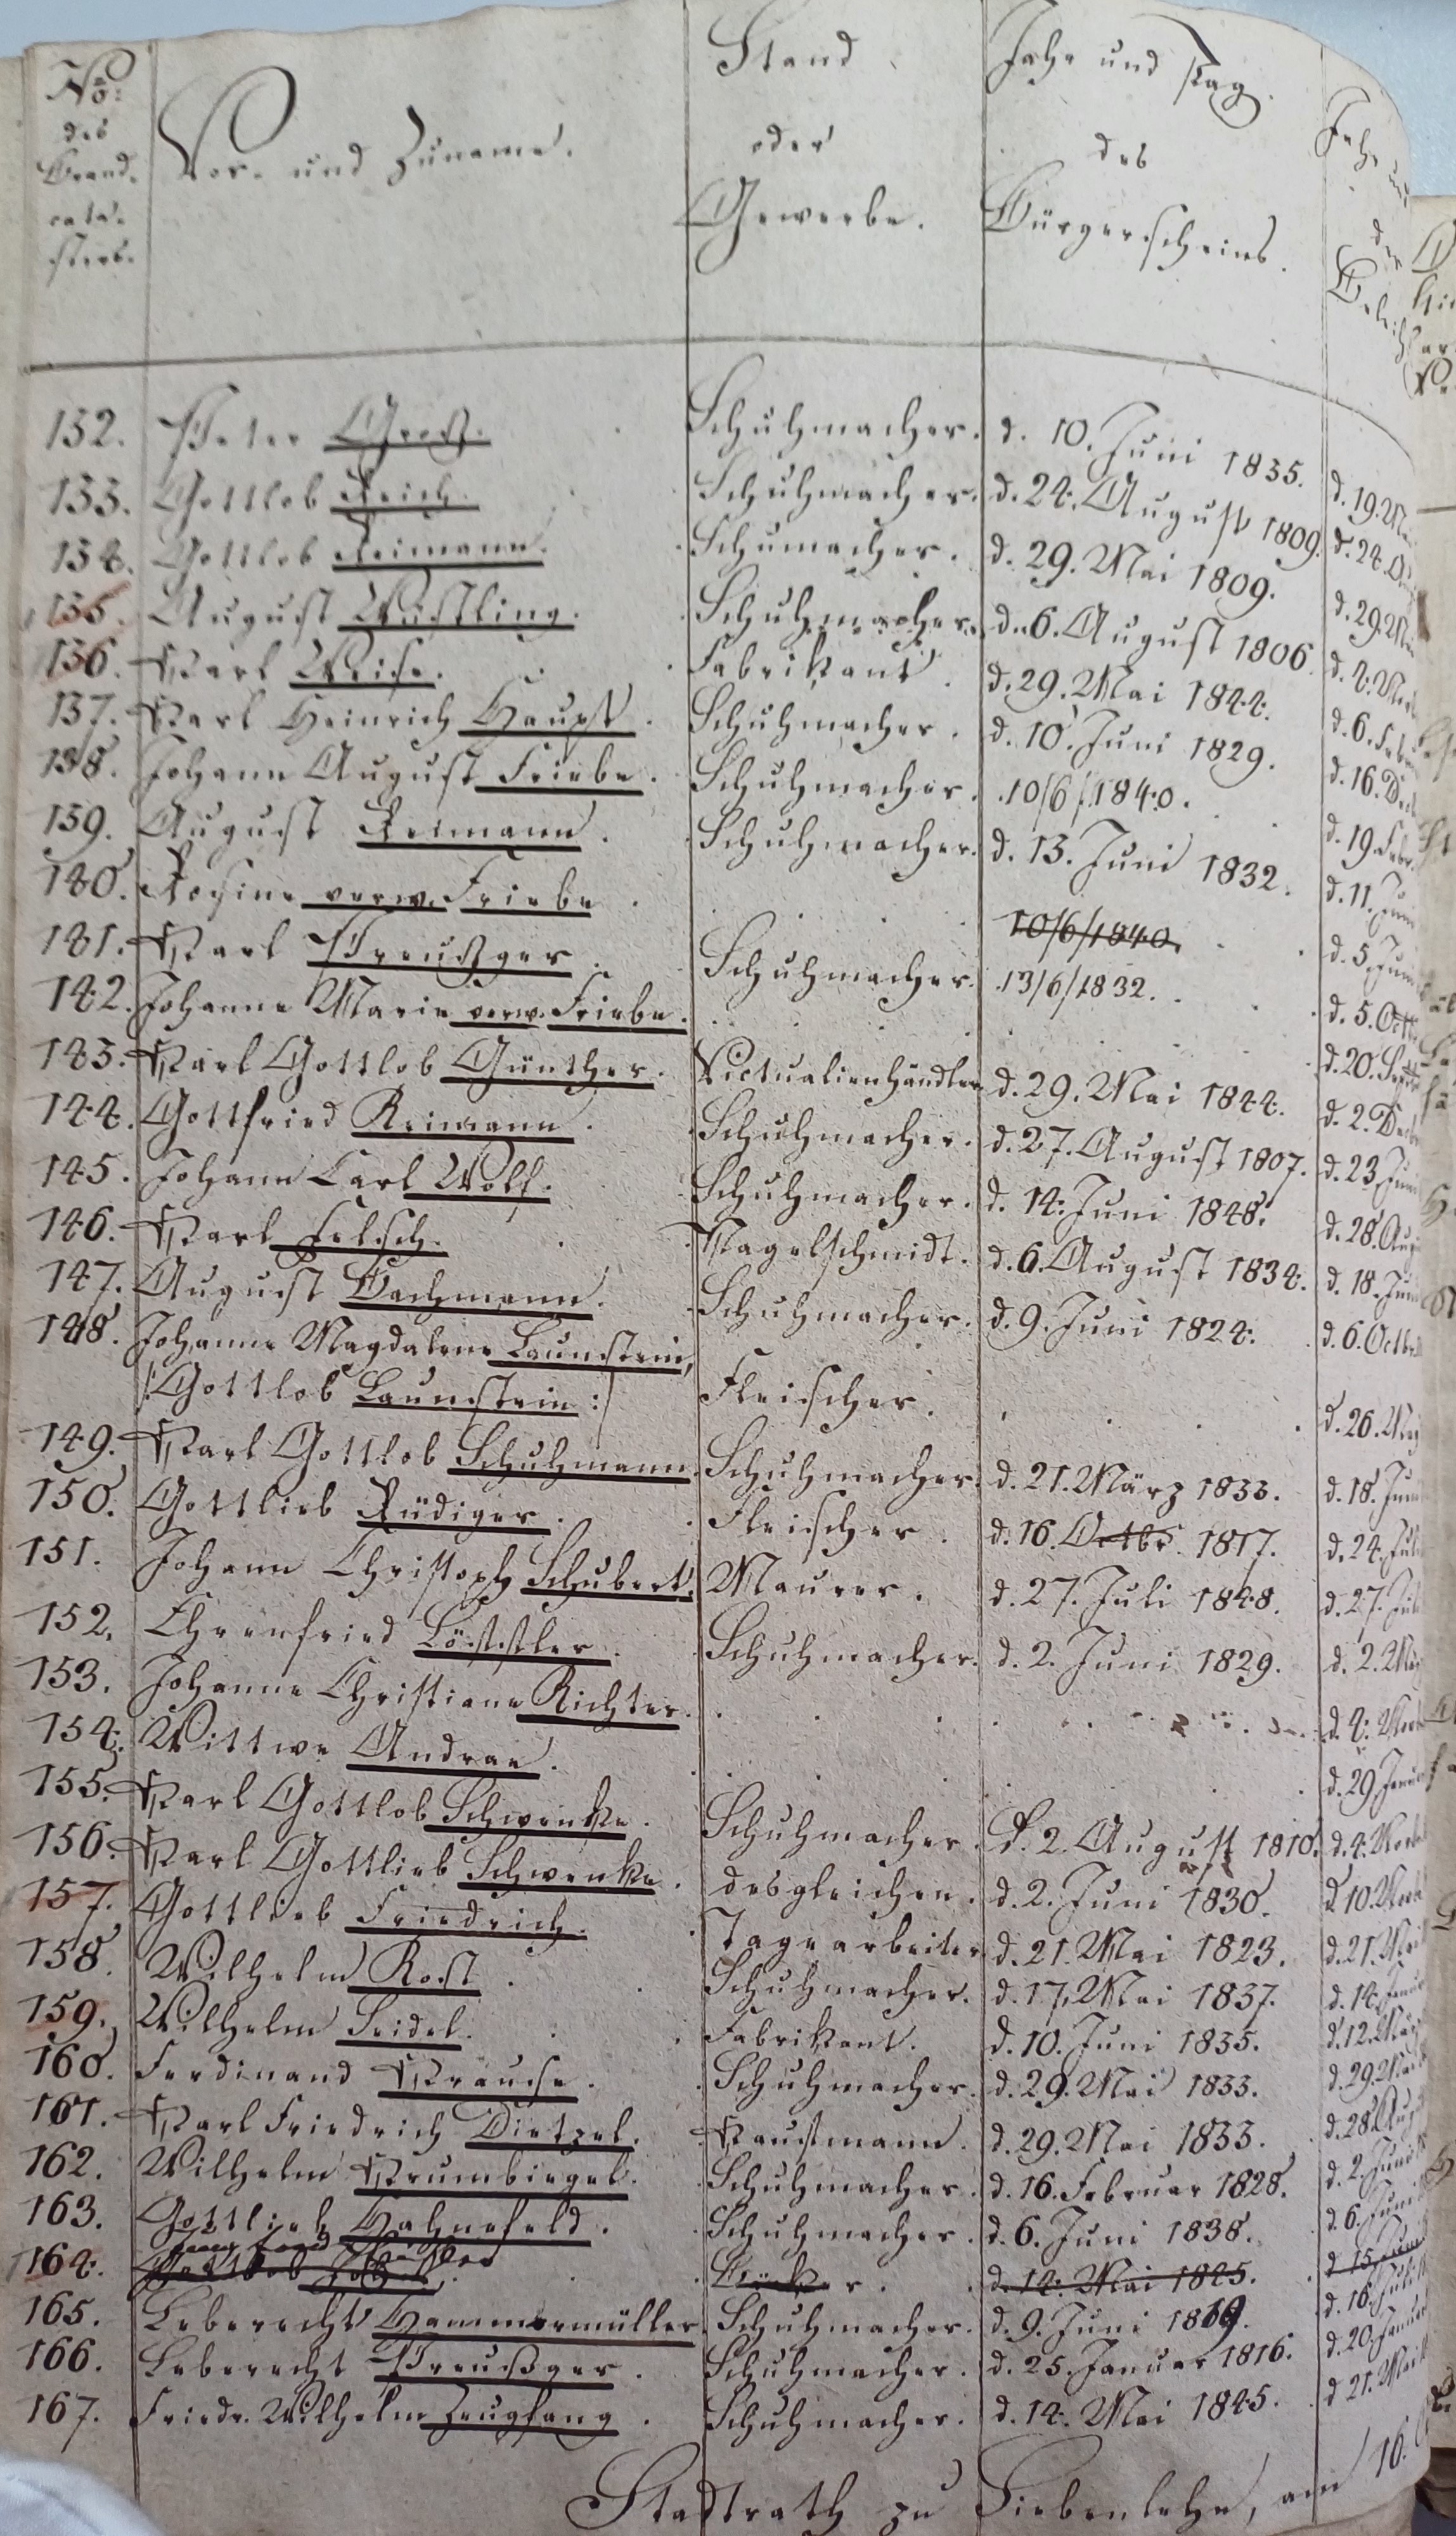 No:
des
Brand-
cata-
sters.
Vor- und Zuname.
Stand
oder
Gewerbe.
Jahr und Tag
des
Bürgerscheins.
Jahr und
132. Peter Groß. Schuhmacher. d. 10. Juni 1835.
133. Gottlob Reich. Schuhmacher. d. 24. August 1809. d. 19. M
134. Gottlob Reimann. Schumacher. d. 29. Mai 1809. d. 24.
135. August Wüstling. Schuhmacher. d. 6. August 1806. d. 29. M
136. Karl Weise. Fabrikant. d. 29. Mai 1844.
137. Karl Heinrich Haupt. Schuhmacher. d. 10. Juni 1829. d. 6. Febr
138. Johann August Friebe. Schuhmacher. 10/6/1840. d. 16. Dec
139. August Reimann. Schuhmacher. d. 13. Juni 1832. d. 19. Febr.
140. Rosine verw. Friebe. 10/6/1840. d. 11. J
141. Karl Preußger. Schuhmacher. 13/6/1832. d. 5. Juni
142. Johanne Marie verw. Friebe. d. 5. Oct
143. Karl Gottlob Günther. Victualienhändler d. 29. Mai 1844. d. 20. Sept
144. Gottfried Reimann. Schuhmacher. d. 27. August 1807. d. 2. Dec
145. Johann Carl Wolf. Schuhmacher. d. 14. Juni 1848. d. 23. Juni
146. Karl Felsch. Nagelschmidt. d. 6. August 1834. d. 28. Aug
147. August Bachmann. Schuhmacher. d. 9. Juni 1824. d. 18. Juni
148. Johanne Magdalene Launstein, d. 6. Octbr
/:Gottlob Launstein:/ Fleischer. d. 26. M
149. Karl Gottlob Schuhmann. Schuhmacher. d. 21. März 1833. d. 18. Jun
150. Gottlieb Rüdiger. Fleischer. d. 16. Octbr. 1817. d. 24. Juli
151. Johann Christoph Schubert. Maurer. d. 27. Juli 1848. d. 27. Juli
152. Ehrenfried Lösstler. Schuhmacher. d. 2. Juni 1829. d. 2. Mä
153. Johanne Christiane Richter. d. 4.
154. Wittwe Andrae. d. 29. Janu
155. Karl Gottlob Schwenke. Schuhmacher. d. 2. August 1810. d. 4.
156. Karl Gottlieb Schwenke. desgleichen. d. 2. Juni 1830. d. 10.
157. Gottlieb Friedrich. Tagearbeiter d. 21. Mai 1823. d. 21. M
158. Wilhelm Rost. Schuhmacher. d. 17. Mai 1837. d. 14. Janu
159. Wilhelm Seidel. Fabrikant. d. 10. Juni 1835. d. 12. Mä
160. Ferdinand Krause. Schuhmacher. d. 29. Mai 1833. d. 29. M
161. Karl Friedrich Dietzel. Kaufmann. d. 29. Mai 1833. d. 28. Aug
162. Wilhelm Krumbiegel. Schuhmacher. d. 16. Februar 1828. d. 2. Juni
163. Gottlieb Hahnefeld. Schuhmacher. d. 6. Juni 1838. d. 6. Juni
164. Gottlob d. 14. Mai 1845. d. 15. Juni
165. Leberecht Hammermüller. Schuhmacher. d. 9. Juni 1819. d. 16. Juli
166. Leberecht Preußger. Schuhmacher. d. 25. Januar 1816. d. 20. Janu
167. Friedr. Wilhelm Zeugfang. Schuhmacher. d. 14. Mai 1845. d. 21. Mai
Stadtrath zu Siebenlehn, am 16.